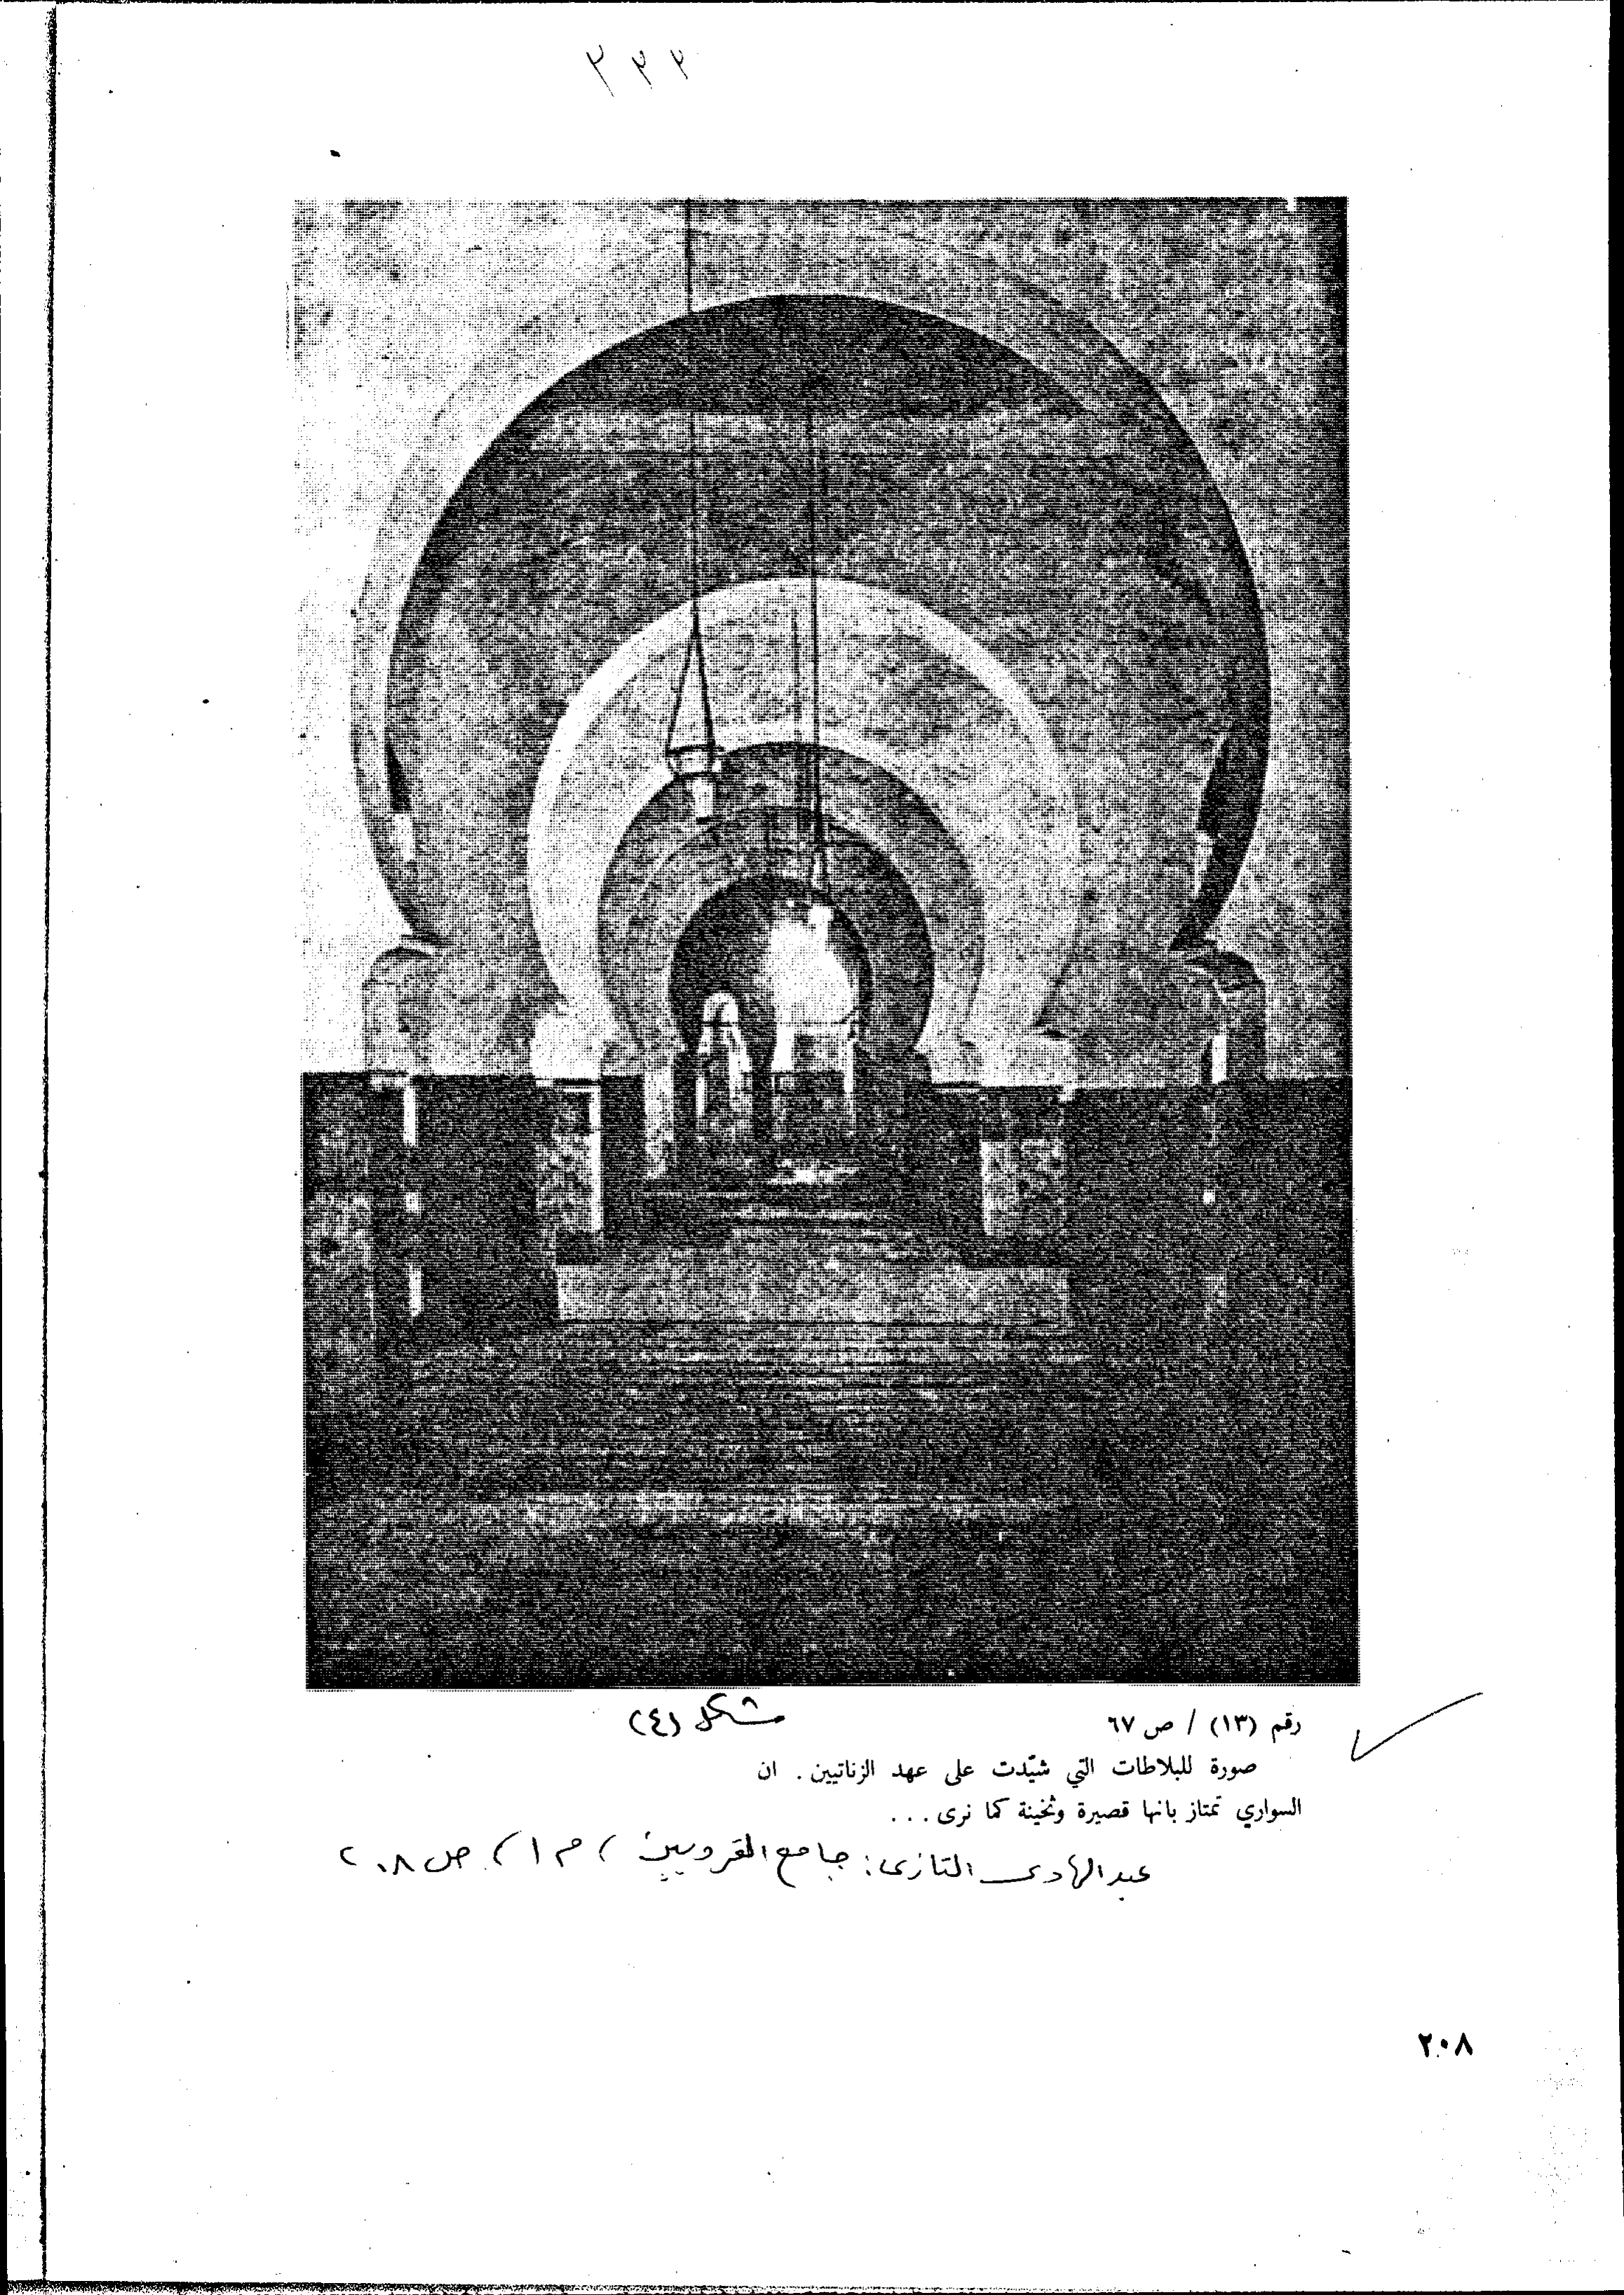 ٣٣٣
رقم (١٣) / ص ٦٧ شكل (٤)
صورة للبلاطات التي شيّدت على عهد الزناتيين . ان
السواري تمتاز بانها قصيرة وثخينة كما نرى . . .
عبد الهادى التازى : جامع القرويين ، م ١ ، ص ٢٠٨
٢٠٨